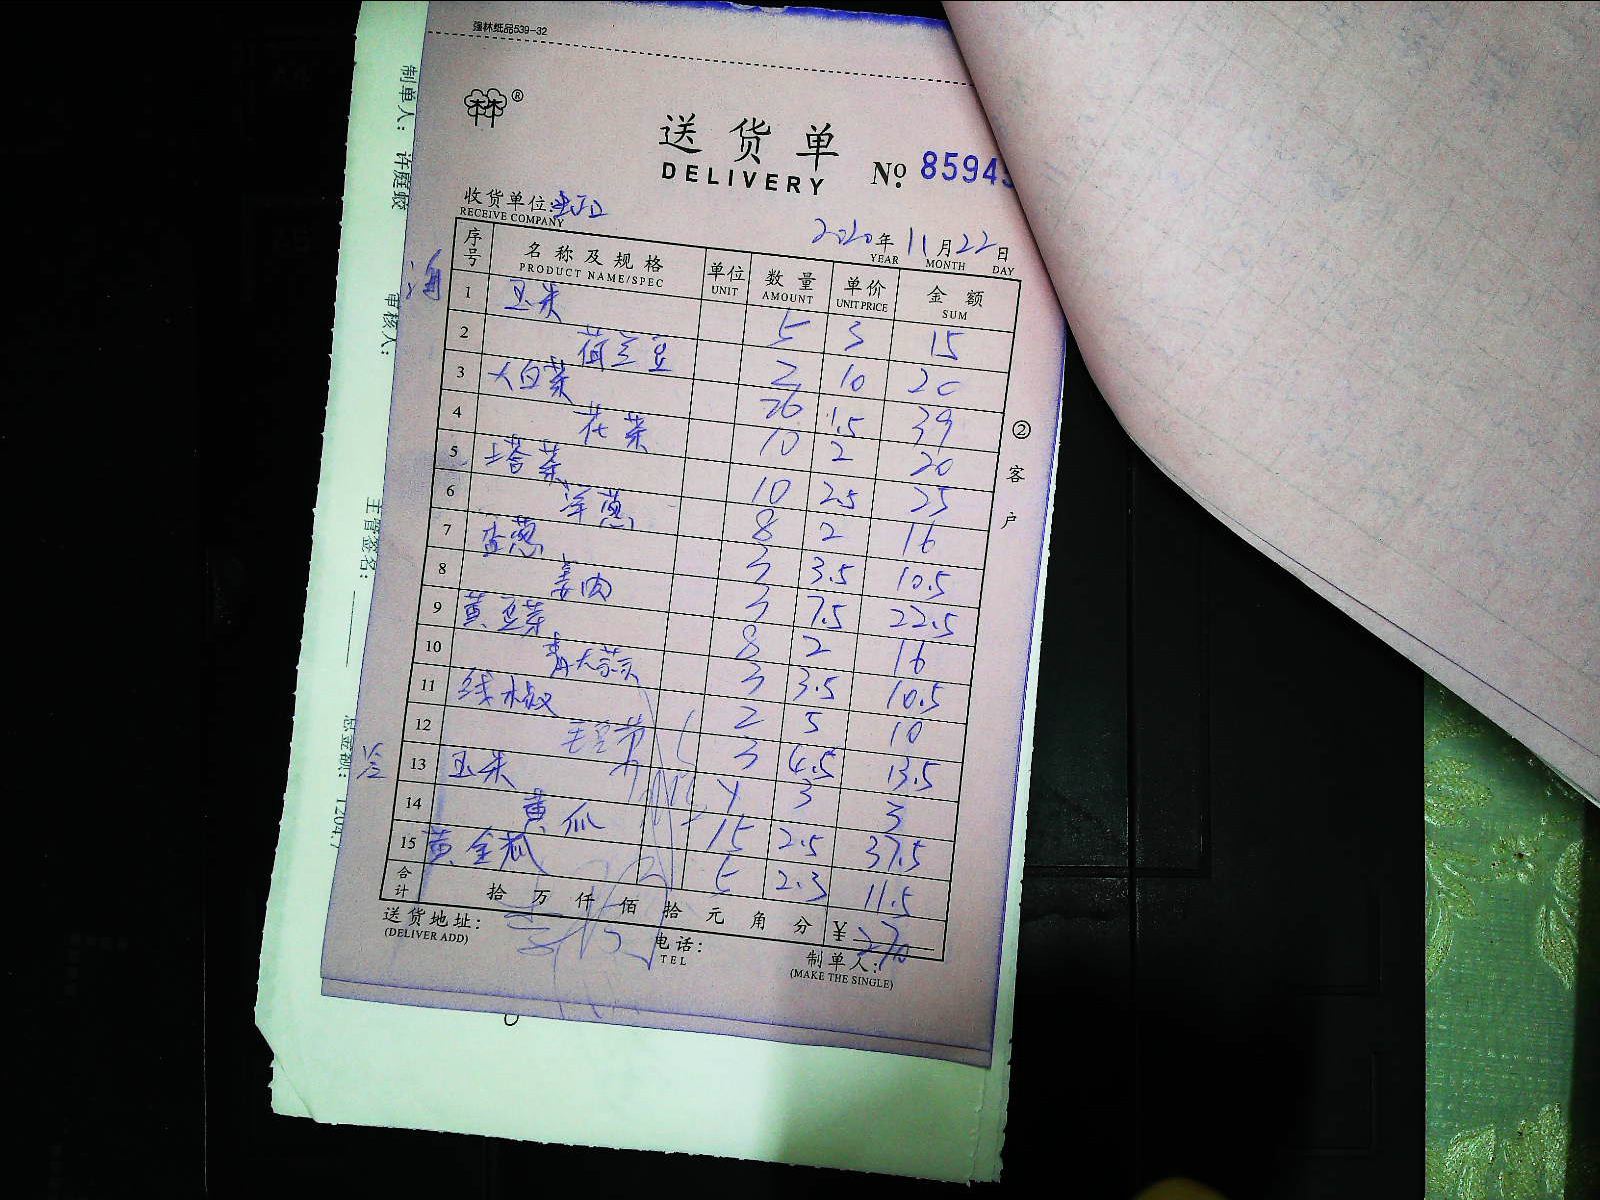 强林纸品539-32
林®
送货单
DELIVERY
No. 8594
收货单位:
RECEIVE COMPANY
2020年11月22日
YEAR MONTH DAY
序号 名称及规格 单位 数量 单价 金额
PRODUCT NAME/SPEC UNIT AMOUNT UNIT PRICE SUM
1 玉米 5 3 15
2 荷兰豆 2 10 20
3 大白菜 26 1.5 39
4 花菜 10 2 20
5 塔菜 10 2.5 25
6 洋葱 8 2 16
7 香葱 3 3.5 10.5
8 姜肉 3 7.5 22.5
9 黄豆芽 8 2 16
10 青大蒜 3 3.5 10.5
11 线椒 2 5 10
12 毛豆节 3 4.5 13.5
13 玉米 1 3 3
14 黄瓜 15 2.5 37.5
15 黄金瓜 5 2.3 11.5
合计 拾 万 仟 佰 拾 元 角 分 ¥270
送货地址:
(DELIVER ADD)
电话:
TEL
制单人:
(MAKE THE SINGLE)
②客户
制单人: 许庭
审核人:
主管签名:
总金额: 1204.7